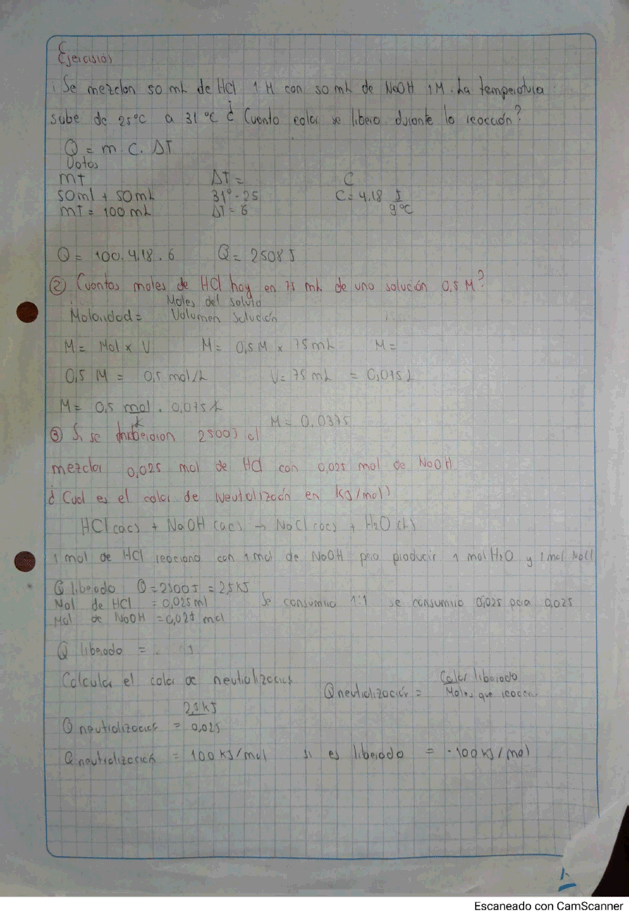 Ejercicios
Se mezclan 50 mL de HCl 1 M con 50 mL de NaOH 1M. La temperatura
sube de 25°C a 31°C ¿ Cuanto calor se libero durante la reacción?
Q = m. C. ΔT
Datos
mT ΔT = C
50ml + 50mL 31°-25 C = 4.18 J
mT = 100 mL ΔT = 6 g°C
Q = 100. 4.18 . 6 Q = 2508 J
② Cuantos moles de HCl hay en 75 mL de una solución 0,5 M?
Moles del soluto
Molaridad = Volumen solución
M = Mol x V. M = 0,5 M x 75mL M =
0,5 M = 0,5 mol/L V = 75 mL = 0,075 L
M = 0,5 mol . 0,075 L
L M = 0.0375
③ Si se liberaron 2500J al
mezclar 0,025 mol de HCl con 0,025 mol de NaOH
¿ Cual es el calor de Neutralización en KJ/mol?
HCl (ac) + NaOH (ac) → NaCl (ac) + H₂O (L)
1 mol de HCl reacciona con 1 mol de NaOH para producir 1 mol H₂O y 1 mol NaCl
Q liberado Q = 2500 J = 2.5 KJ
Mol de HCl = 0,025 ml Se consumio 1:1 se consumio 0,025 para 0,025
Mol de NaOH = 0,025 mol
Q liberado =
Calcula el calor de neutralización
Calor liberado
Q neutralización = Moles que reaccio.
2,5 KJ
Q neutralización = 0,025
Q neutralización = 100 KJ/mol si es liberado = -100 KJ/mol
Escaneado con CamScanner